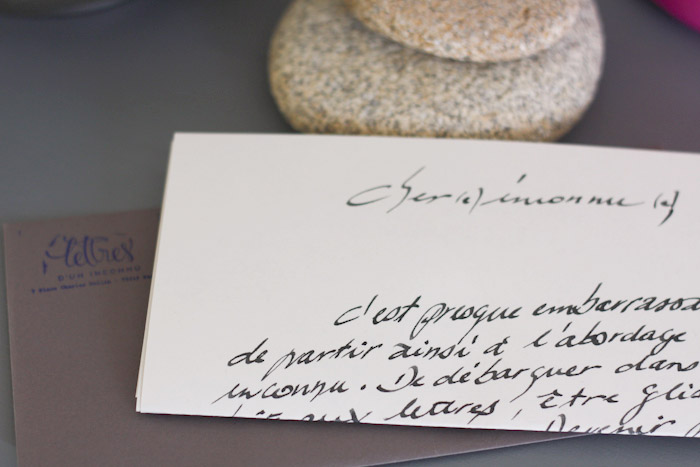 Cher(e) inconnu(e),
c'est presque embarrassa
de partir ainsi à l'abordage
inconnu. De débarquer dans
aux lettres, être gli
Devenir
lettres
D'UN INCONNU